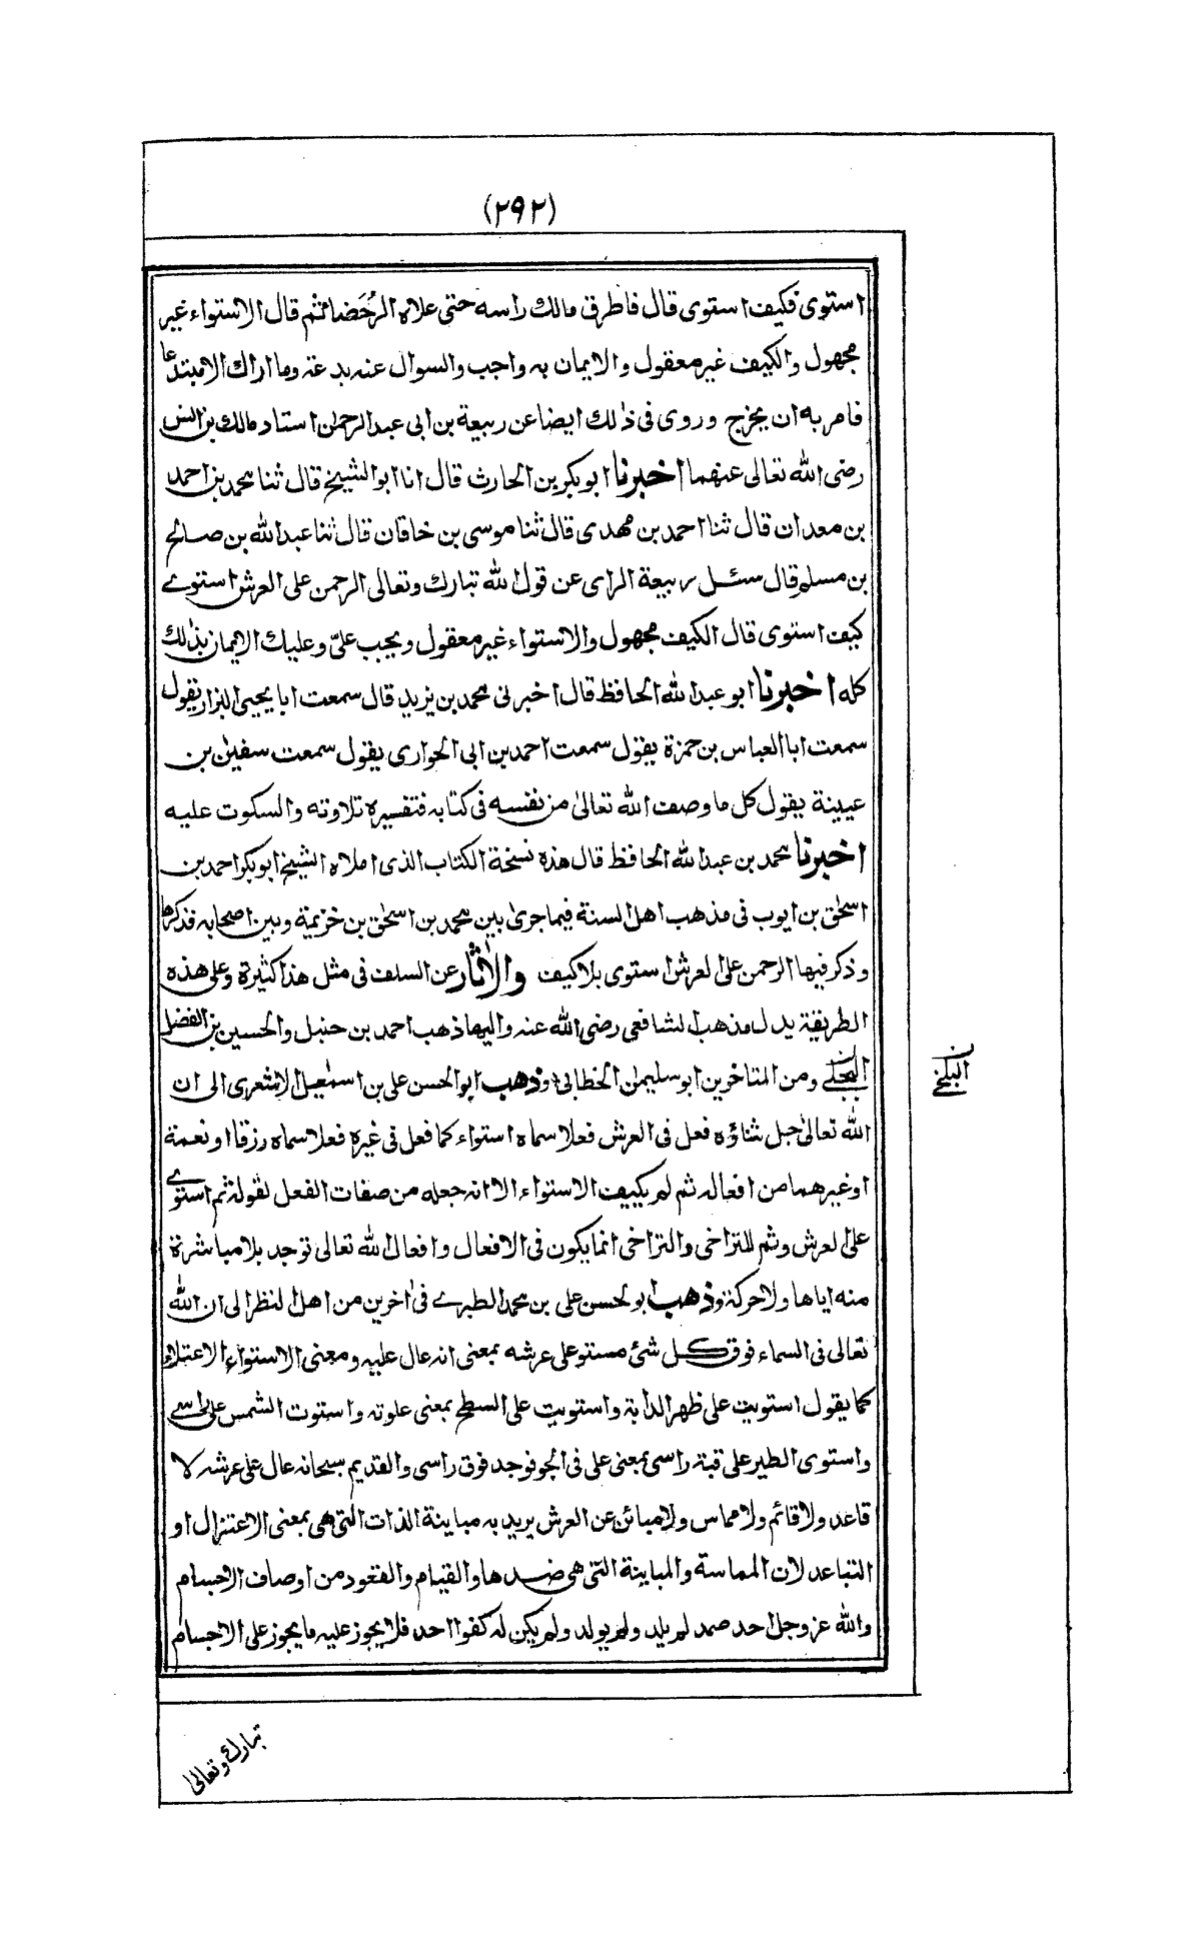 (٢٩٢)
استوى فكيف استوى قال فاطرق مالك راسه حتى علاه الرُحَضا ثم قال الاستواء غير
مجهول والكيف غير معقول والايمان به واجب والسوال عنه بدعة وما اراك الا مبتدعا
فامر به ان يخرج وروى فى ذٰلك ايضا عن ربيعة بن ابى عبد الرحمٰن استاد مالك بن انس
رضى الله تعالى عنهما اخبرنا ابو بكر بن الحارث قال انا ابو الشيخ قال ثنا محمد بن احمد
بن معدان قال ثنا احمد بن مهدى قال ثنا موسى بن خاقان قال ثنا عبد الله بن صالح
بن مسلم قال سئل ربيعة الراى عن قول الله تبارك وتعالى الرحمن على العرش استوے
كيف استوى قال الكيف مجهول والاستواء غير معقول ويجب علىّ وعليك الايمان بذٰلك
كله اخبرنا ابو عبد الله الحافظ قال اخبرنى محمد بن يزيد قال سمعت ابا يحيى البزار يقول
سمعت ابا العباس بن حمزة يقول سمعت احمد بن ابى الحوارى يقول سمعت سفيٰن بن
عيينة يقول كل ما وصف الله تعالىٰ من نفسه فى كتابه فتفسيره تلاوته والسكوت عليه
اخبرنا محمد بن عبد الله الحافظ قال هذه نسخة الكتاب الذى املاه الشيخ ابو بكر احمد بن
اسحٰق بن ايوب فى مذهب اهل السنة فيما جرىٰ بين محمد بن اسحٰق بن خزيمة وبين اصحابه فذكرها
وذكر فيها الرحمن على العرش استوى بلا كيف والاٰثار عن السلف فى مثل هذا كثيرة وعلى هذه
الطريقة يدل مذهب الشافعى رضى الله عنه واليها ذهب احمد بن حنبل والحسين بن الفضل
البجلے ومن المتاخرين ابو سليمٰن الخطابى وذهب ابو الحسن على بن اسمٰعيل الاشعرى الى ان
الله تعالىٰ جل شناؤه فعل فى العرش فعلا سماه استواء كما فعل فى غيره فعلا سماه رزقا او نعمة
او غيرهما من افعاله ثم لم يكيف الاستواء الا انه جعله من صفات الفعل لقوله ثم استوے
على العرش وثم للتراخى والتراخى انما يكون فى الافعال وافعال الله تعالى توجد بلا مباشرة
منه اياها ولا حركة وذهب ابو الحسن على بن محمد الطبرے فى اٰخرين من اهل النظر الى ان الله
تعالى فى السماء فوق كل شئ مستو على عرشه بمعنى انه عال عليه ومعنى الاستواء الاعتلاء
كما يقول استويت على ظهر الدابة واستويت على السطح بمعنى علوته واستوت الشمس على راسے
واستوى الطير على قبة راسى بمعنى على فى الجو فوجد فوق راسى والقديم سبحانه عال على عرشه لا
قاعد ولا قائم ولا مماس ولا مبائن عن العرش يريد به مباينة الذات التى هى بمعنى الاعتزال او
التباعد لان المماسة والمباينة التى هى ضدها والقيام والقعود من اوصاف الاجسام
والله عز وجل احد صمد لم يلد ولم يولد ولم يكن له كفوا احد فلا يجوز عليه ما يجوز على الاجسام
تبارك وتعالىٰ